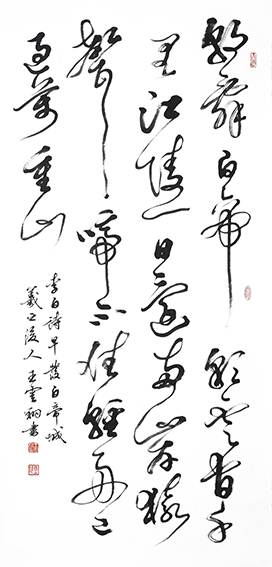 朝辭白帝彩雲間千
里江陵一日還兩岸猿
聲啼不住輕舟已
過萬重山
李白詩早發白帝城
羲之後人王書